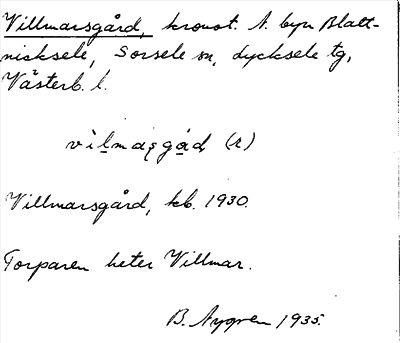 Villmarsgård, kronot. i byn Blatt-
nicksele, Sorsele sn, Lycksele tg,
Västerb. l.
vìlmaṣgạḍ (r)
Villmarsgård, kb. 1930.
Torparen heter Villmar.
B. Nygren 1935.